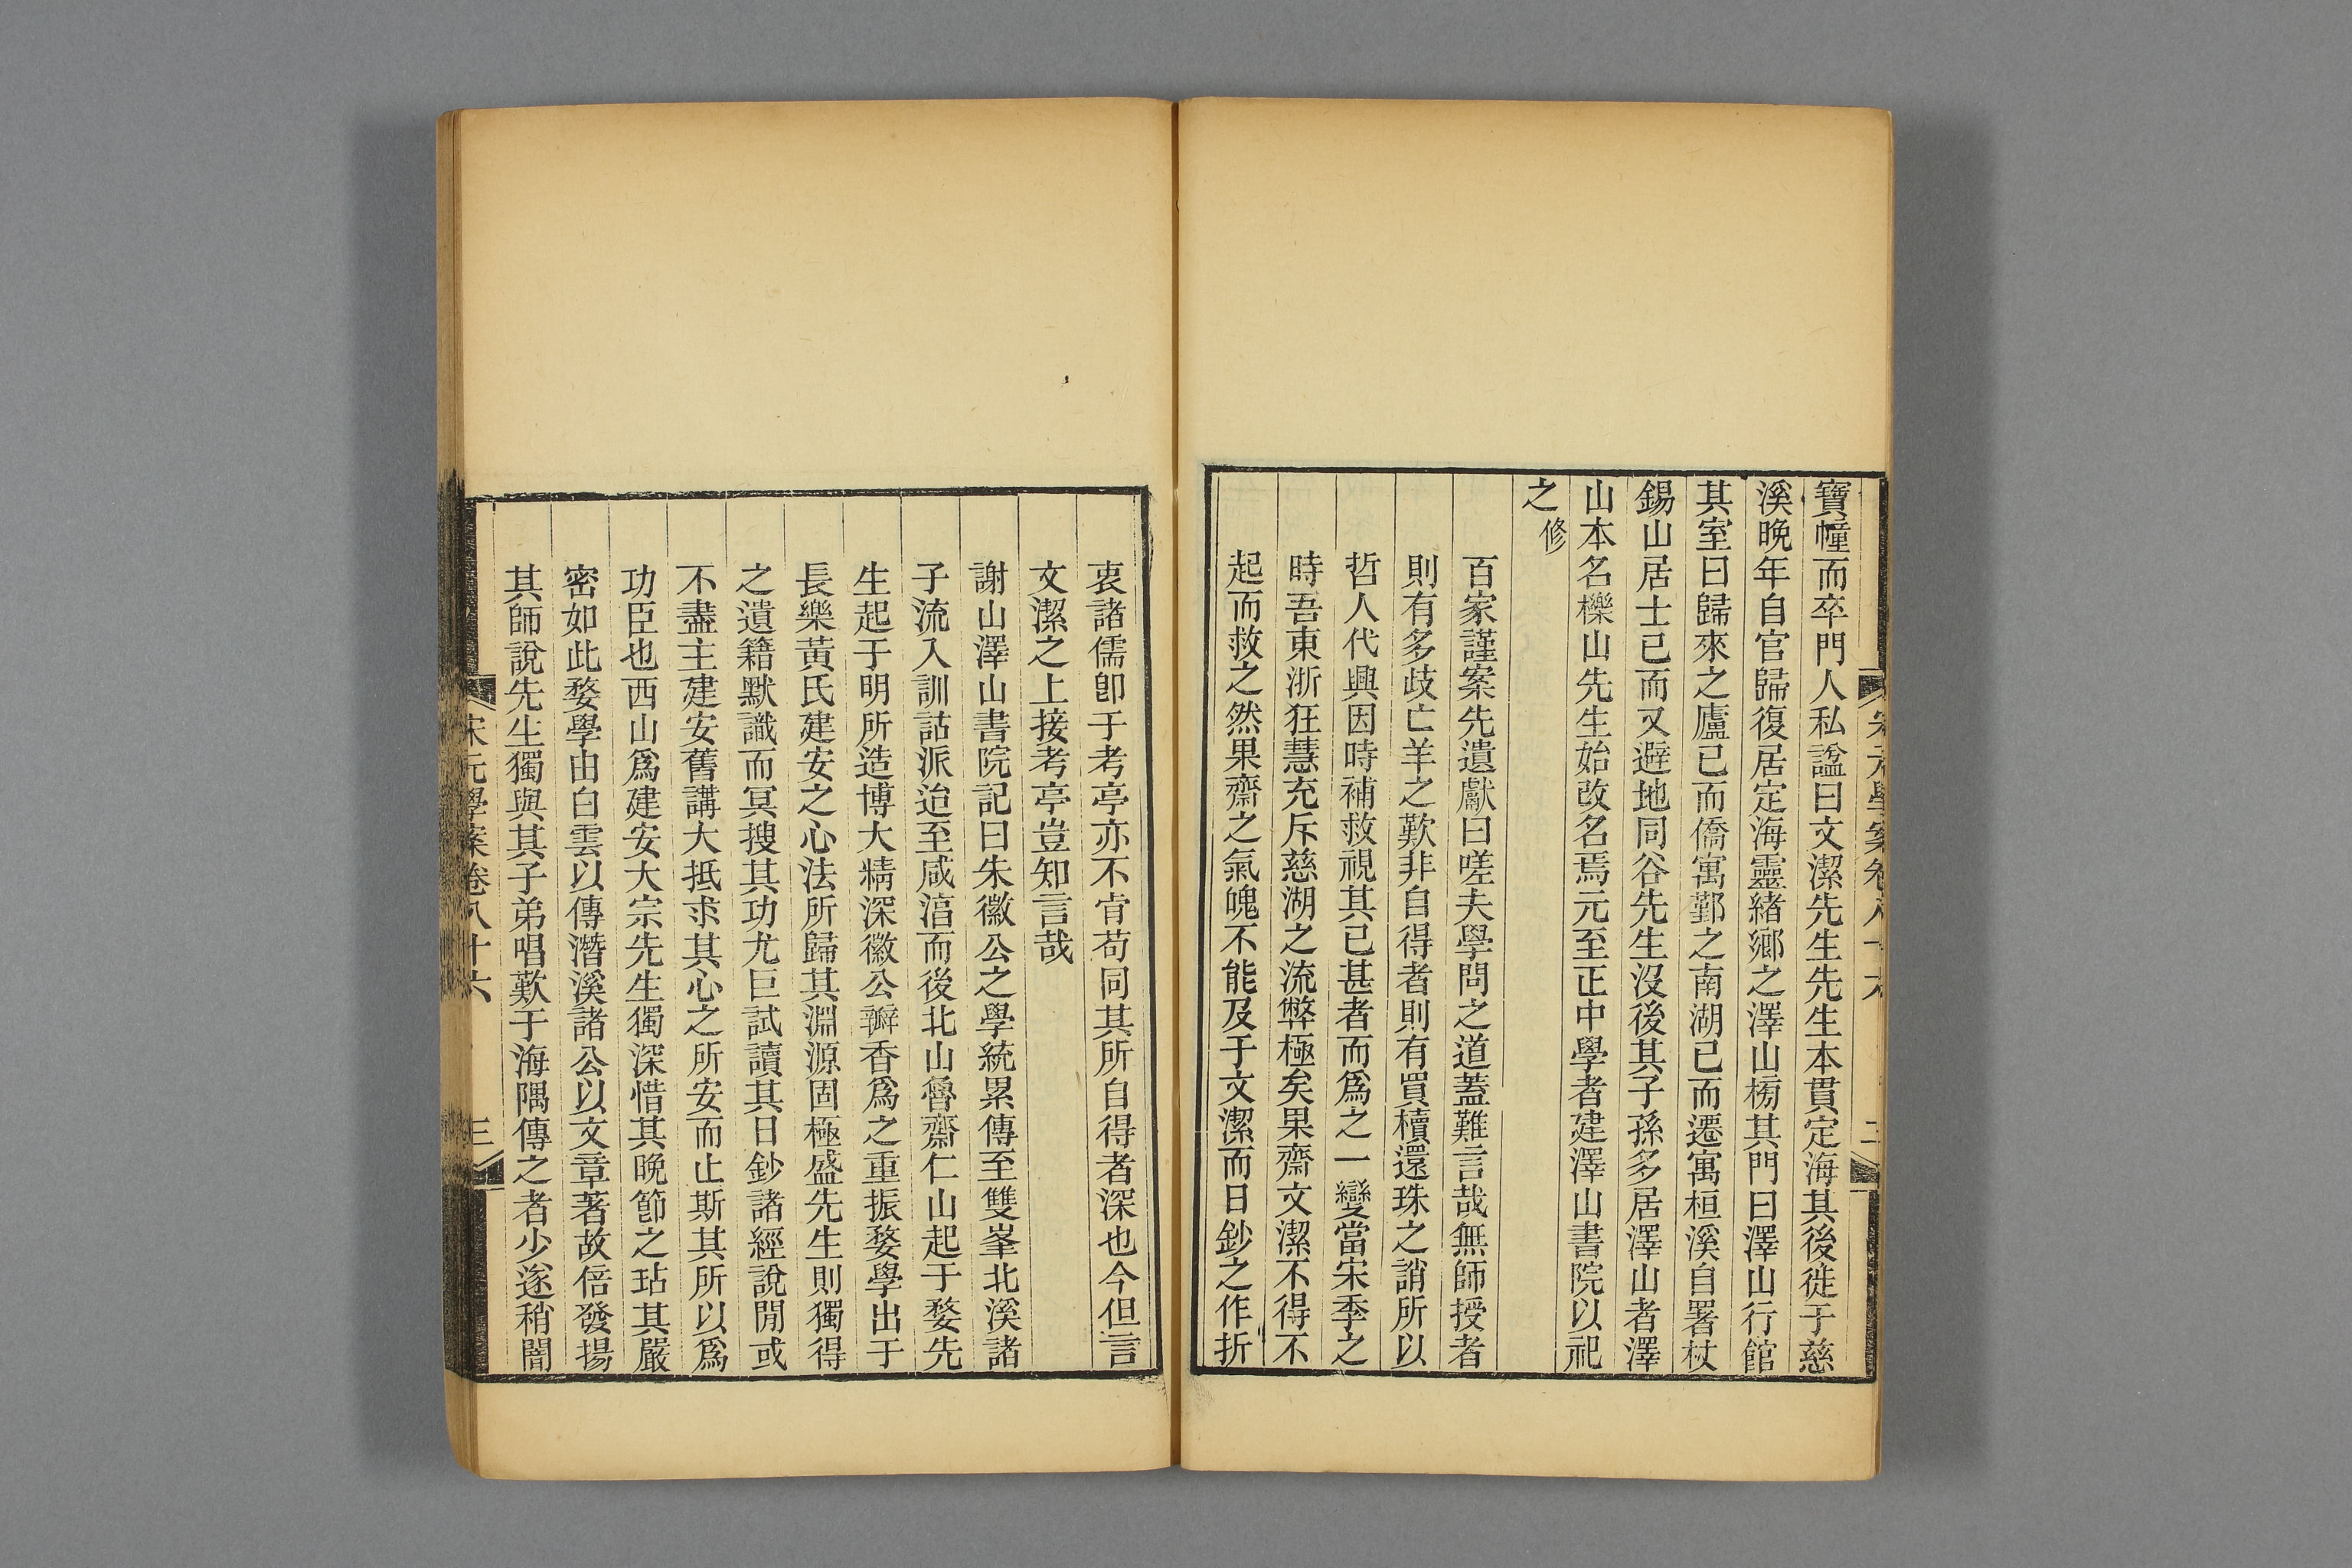 宋元學案卷八十六 二
寶幢而卒門人私諡曰文潔先生先生本貫定海其後徙于慈
溪晚年自官歸復居定海靈緒鄉之澤山榜其門曰澤山行館
其室曰歸來之廬已而僑寓鄞之南湖已而遷寓桓溪自署杖
錫山居士已而又避地同谷先生沒後其子孫多居澤山者澤
山本名櫟山先生始改名焉元至正中學者建澤山書院以祀
之修
百家謹案先遺獻曰嗟夫學問之道蓋難言哉無師授者
則有多歧亡羊之歎非自得者則有買櫝還珠之誚所以
哲人代興因時補救視其已甚者而爲之一變當宋季之
時吾東浙狂慧充斥慈湖之流弊極矣果齋文潔不得不
起而救之然果齋之氣魄不能及于文潔而日鈔之作折
衷諸儒卽于考亭亦不肯苟同其所自得者深也今但言
文潔之上接考亭豈知言哉
謝山澤山書院記曰朱徽公之學統累傳至雙峯北溪諸
子流入訓詁派迨至咸淳而後北山魯齋仁山起于婺先
生起于明所造博大精深徽公瓣香爲之重振婺學出于
長樂黃氏建安之心法所歸其淵源固極盛先生則獨得
之遺籍默識而冥搜其功尤巨試讀其日鈔諸經說閒或
不盡主建安舊講大抵求其心之所安而止斯其所以爲
功臣也西山爲建安大宗先生獨深惜其晚節之玷其嚴
密如此婺學由白雲以傳潛溪諸公以文章著故倍發揚
其師說先生獨與其子弟唱歎于海隅傳之者少遂稍闇
宋元學案卷八十六 三